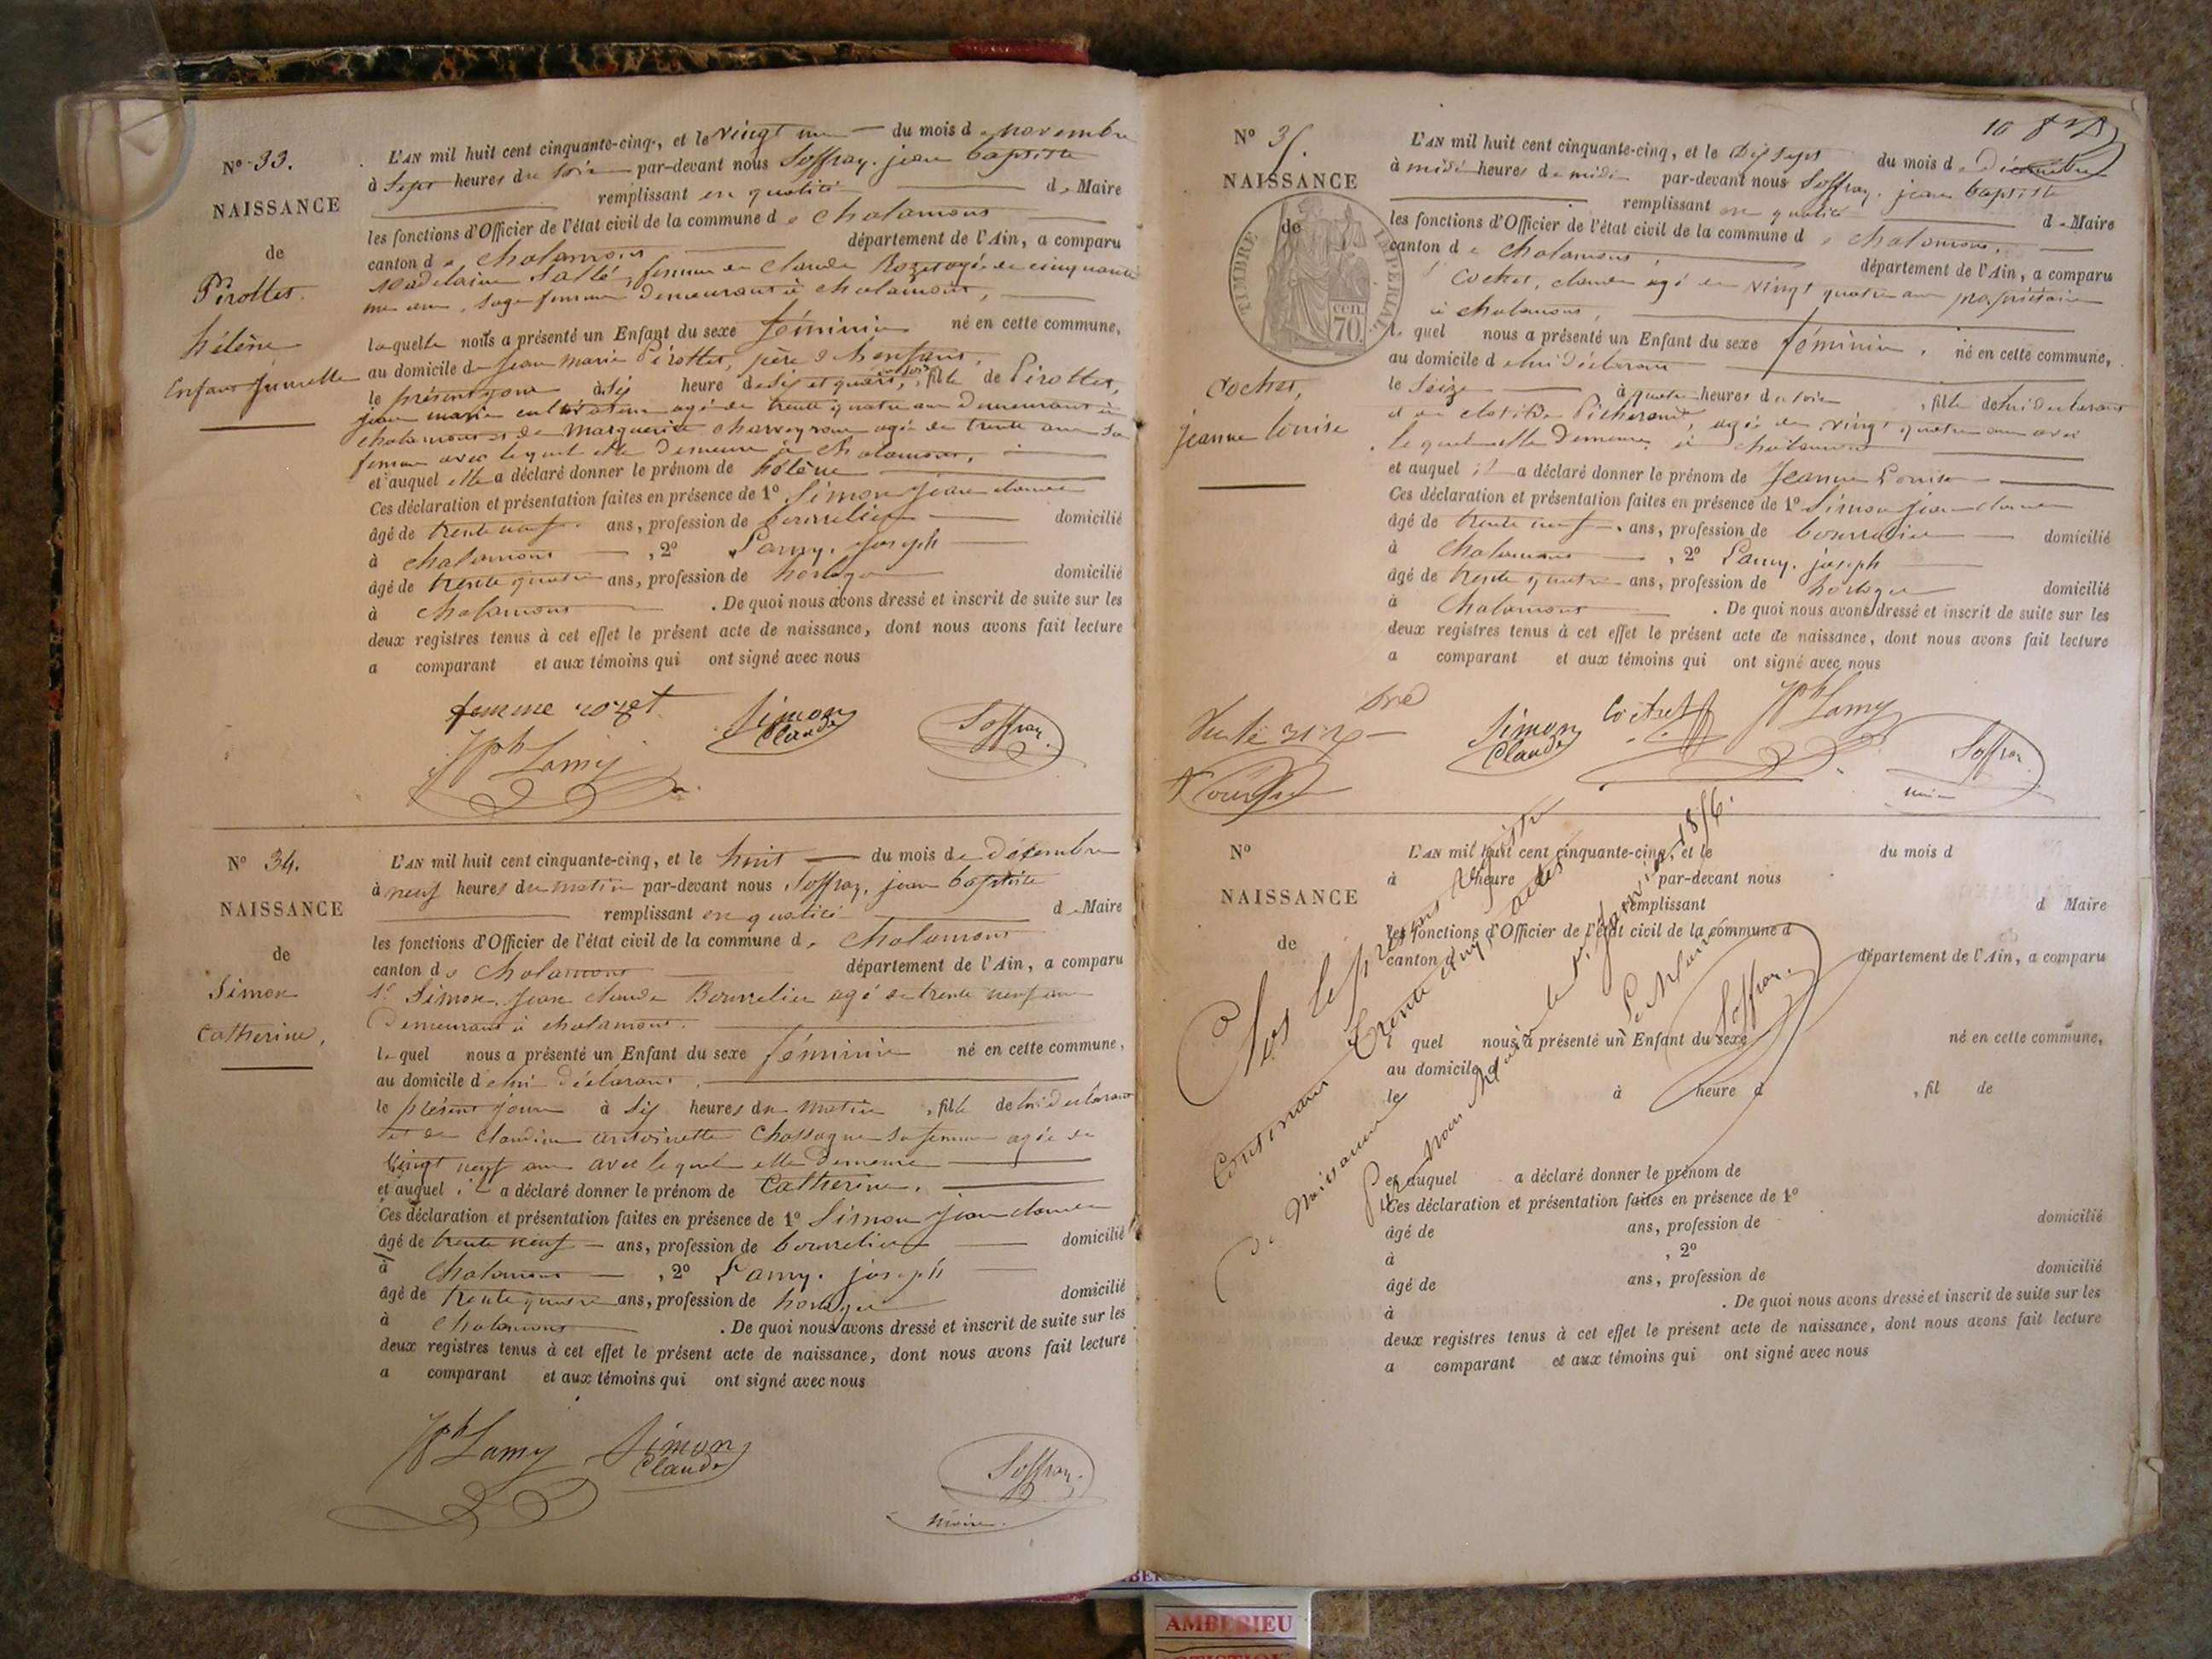 N° 33.
NAISSANCE
de
Pirollet
hélène
Enfant jumelle
L'AN mil huit cent cinquante-cinq, et le vingt un du mois de novembre
à sept heures du soir par-devant nous Soffray, jean baptiste
remplissant en qualité de Maire
les fonctions d'Officier de l'état civil de la commune de chalamont
canton de chalamont département de l'Ain, a comparu
femme de claude Rozet agée de cinquante
un ans, sage femme demeurant à chalamont,
laquelle nous a présenté un Enfant du sexe féminin né en cette commune,
au domicile de jean marie Pirollet, père de l'enfant,
le présent jour à six heure de six et quart, fille de Pirollet,
jean marie cultivateur agé de trente quatre ans demeurant à
chalamont et de Marguerite agée de trente ans sa
femme avec lequel elle demeure à chalamont,
et auquel elle a déclaré donner le prénom de hélène
Ces déclaration et présentation faites en présence de 1° Simon jean claude
âgé de trente neuf ans, profession de bourrelier domicilié
à chalamont, 2° Lamy, joseph
âgé de trente quatre ans, profession de horloger domicilié
à chalamont. De quoi nous avons dressé et inscrit de suite sur les
deux registres tenus à cet effet le présent acte de naissance, dont nous avons fait lecture
a comparant et aux témoins qui ont signé avec nous
femme rozet
Simon
Claude
Soffray
Jph Lamy
N° 34.
NAISSANCE
de
Simon
Catherine,
L'AN mil huit cent cinquante-cinq, et le huit du mois de décembre
à neuf heures du matin par-devant nous Soffray, jean baptiste
remplissant en qualité de Maire
les fonctions d'Officier de l'état civil de la commune de chalamont
canton de chalamont département de l'Ain, a comparu
Sr Simon, jean claude Bourrelier agé de trente neuf ans
demeurant à chalamont.
lequel nous a présenté un Enfant du sexe féminin né en cette commune,
au domicile de lui déclarant,
le présent jour à six heures du matin, fille de lui déclarant
et de claudine antoinette Chassagne sa femme agée de
vingt neuf ans avec lequel elle demeure
et auquel il a déclaré donner le prénom de Catherine.
Ces déclaration et présentation faites en présence de 1° Simon jean claude
âgé de trente neuf ans, profession de bourrelier domicilié
à chalamont, 2° Lamy. joseph
âgé de trente quatre ans, profession de horloger domicilié
à chalamont. De quoi nous avons dressé et inscrit de suite sur les
deux registres tenus à cet effet le présent acte de naissance, dont nous avons fait lecture
a comparant et aux témoins qui ont signé avec nous
Jph Lamy
Simon
Claude
Soffray
Maire
N° 35.
NAISSANCE
de
TIMBRE IMPERIAL
70 cen.
Cochet,
jeanne louise
L'AN mil huit cent cinquante-cinq, et le dix sept du mois de décembre
à midi heures de midi par-devant nous Soffray, jean baptiste
remplissant en qualité de Maire
les fonctions d'Officier de l'état civil de la commune de chalamont,
canton de chalamont, département de l'Ain, a comparu
Cochet, claude agé de vingt quatre ans propriétaire
à chalamont,
lequel nous a présenté un Enfant du sexe féminin, né en cette commune,
au domicile de lui déclarant
le seize à quatre heures du soir, fille de lui déclarant
et de clotilde agée de vingt quatre ans avec
lequel elle demeure à chalamont
et auquel il a déclaré donner le prénom de Jeanne Louise
Ces déclaration et présentation faites en présence de 1° Simon jean claude
âgé de trente neuf ans, profession de bourrelier domicilié
à chalamont, 2° Lamy. joseph
âgé de trente quatre ans, profession de horloger domicilié
à chalamont. De quoi nous avons dressé et inscrit de suite sur les
deux registres tenus à cet effet le présent acte de naissance, dont nous avons fait lecture
a comparant et aux témoins qui ont signé avec nous
Simon
Claude
Cochet
Jph Lamy
Soffray
N°
NAISSANCE
de
L'AN mil huit cent cinquante-cinq, et le du mois d
à heure d par-devant nous
remplissant d Maire
les fonctions d'Officier de l'état civil de la commune d
canton d département de l'Ain, a comparu
l quel nous a présenté un Enfant du sexe né en cette commune,
au domicile d
le à heure d, fil de
et auquel a déclaré donner le prénom de
Ces déclaration et présentation faites en présence de 1°
âgé de ans, profession de domicilié
à, 2°
âgé de ans, profession de domicilié
à. De quoi nous avons dressé et inscrit de suite sur les
deux registres tenus à cet effet le présent acte de naissance, dont nous avons fait lecture
a comparant et aux témoins qui ont signé avec nous
Clos le présent Registre
Contenant trente cinq actes
de Naissance
Par Nous Maire le janvier 1856.
Le Maire
Soffray
AMBERIEU